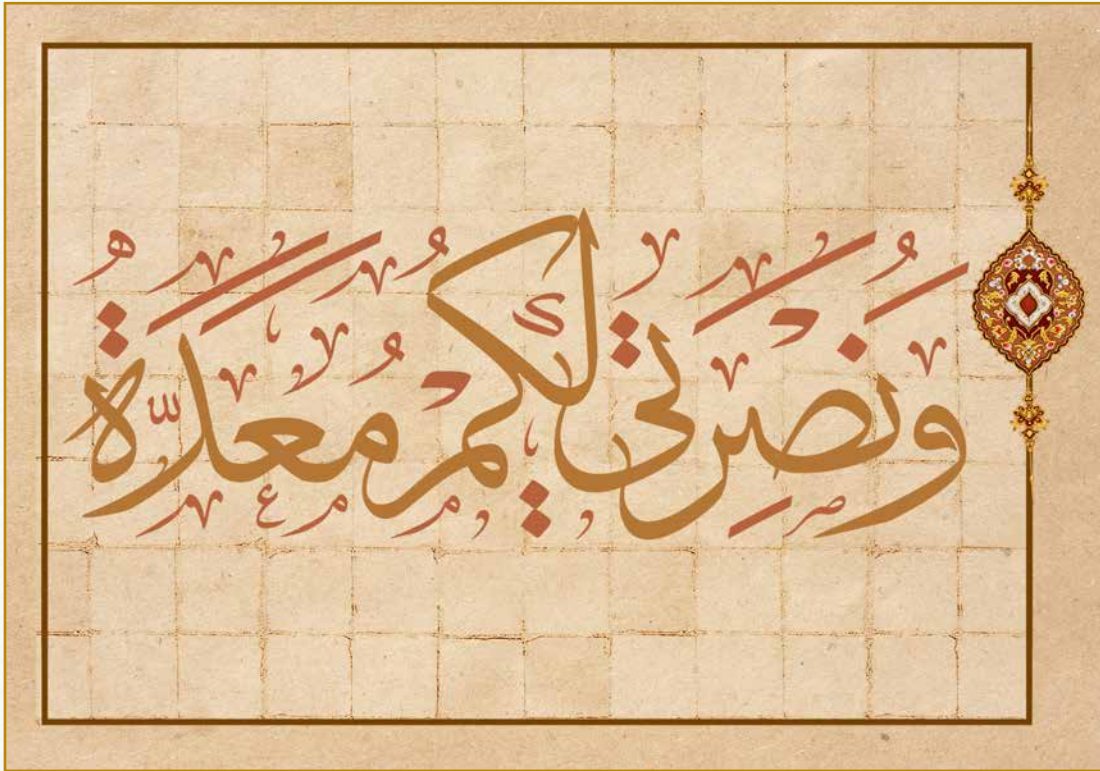 وَنُصْرَتِي لَكُمْ مُعَدَّةٌ